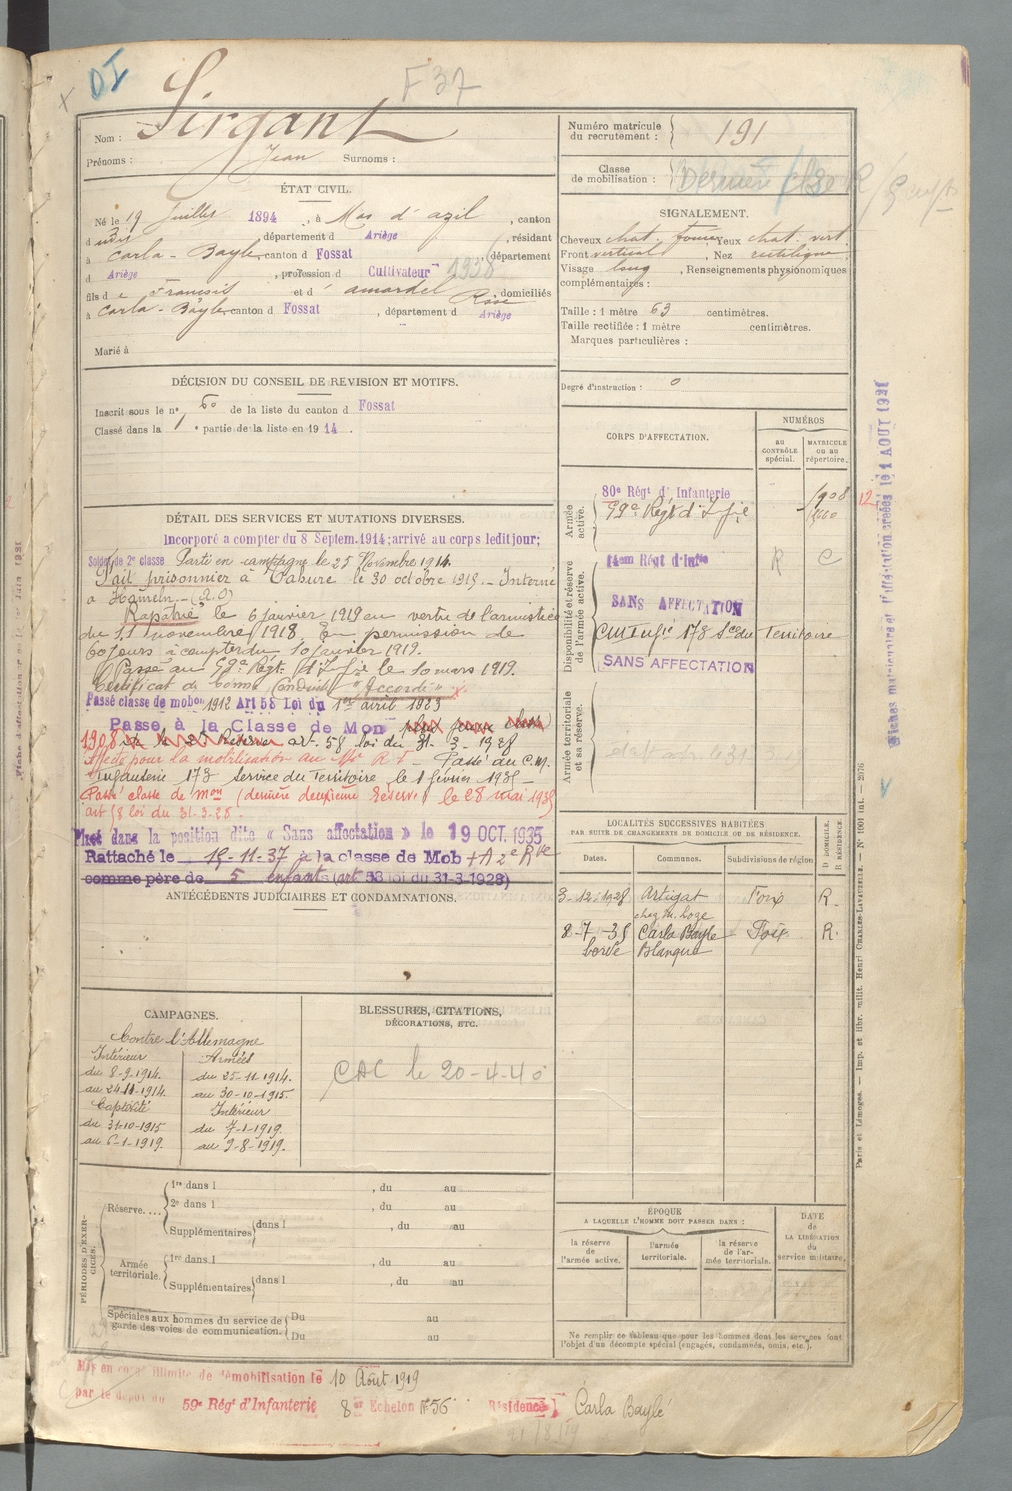 DI
F 37
Nom : Sirgant
Prénoms : Jean Surnoms :
Numéro matricule du recrutement : 191
Classe de mobilisation : Dernière
ÉTAT CIVIL.
Né le 19 Juillet 1894, à Mas d'azil, canton
d udis, département d Ariège, résidant
à Carla-Bayle canton d Fossat (département
d Ariège, profession d Cultivateur 1938
fils de Francois et d' amardel Rose, domiciliés
à Carla-Bayle canton d Fossat, département d Ariège
Marié à
SIGNALEMENT.
Cheveux chat. foncé, Yeux chat. vert.
Front vertical, Nez rectiligne
Visage long, Renseignements physiónomiques
complémentaires :
Taille : 1 mètre 63 centimètres.
Taille rectifiée : 1 mètre centimètres.
Marques particulières :
Degré d'instruction : 0
DÉCISION DU CONSEIL DE REVISION ET MOTIFS.
Inscrit sous le n° 60 de la liste du canton d Fossat
Classé dans la 1e partie de la liste en 1914.
DÉTAIL DES SERVICES ET MUTATIONS DIVERSES.
Incorporé a compter du 8 Septem. 1914; arrivé au corps leditjour;
Soldat de 2e classe Parti en campagne le 25 Novembre 1914.
Fait prisonnier à Tahure le 30 octobre 1915. - Interné
a Hameln -
Rapatrié le 6 janvier 1919 en vertu de l'armistice
du 11 novembre 1918. En permission de
60 jours à compter du 10 janvier 1919.
Passé au 59e Régt d'Infie le 10 mars 1919.
Certificat de bonne conduite "Accordé"
Passé classe de mobon 1912 Art 58 Loi du 1er avril 1923
Passe à la Classe de Mon
1908 art. 58 loi du 31-3-1928
Affecté pour la mobilisation au - Passé au C.M.
Infanterie 173 Service du Territoire le 1 février 1935 -
Passé classe de mon (dernière deuxieme Réserve) le 28 mai 1935
art 58 loi du 31.3.28.
Placé dans la position dite « Sans affectation » le 19 OCT. 1935
Rattaché le 15-11-37 à la classe de Mob + A 2e Rve
comme père de 5 enfants (art 58 loi du 31-3-1928)
ANTÉCÉDENTS JUDICIAIRES ET CONDAMNATIONS.
CORPS D'AFFECTATION.
NUMÉROS
au CONTRÔLE spécial.
MATRICULE ou au répertoire.
Armée active.
80e Régt d'Infanterie
59e Régt d'Infie
1908
12
Disponibilité et réserve de l'armée active.
14em Régt d'Infie R C
SANS AFFECTATION
CM Infie 173 Sce du Territoire
SANS AFFECTATION
Armée territoriale et sa réserve.
LOCALITÉS SUCCESSIVES HABITÉES
PAR SUITE DE CHANGEMENTS DE DOMICILE OU DE RÉSIDENCE.
Dates. Communes. Subdivisions de région
D DOMICILE.
R RÉSIDENCE.
3-12-1928 Artigat Foix R.
chez M. Loze
8-7-35 Carla Bayle Foix R.
Blanqué
CAMPAGNES.
Contre l'Allemagne
Intérieur
du 8-9-1914.
au 24-11-1914.
Captivité
du 31-10-1915
au 6-1-1919.
Armées
du 25-11-1914.
au 30-10-1915.
Intérieur
du 7-1-1919.
au 9-8-1919.
BLESSURES, CITATIONS,
DÉCORATIONS, ETC.
CAC le 20-4-40
PÉRIODES D'EXERCICES.
Réserve....
1re dans l , du au
2e dans l , du au
Supplémentaires dans l , du au
Armée territoriale.
1re dans l , du au
Supplémentaires dans l , du au
Spéciales aux hommes du service de garde des voies de communication.
Du au
Du au
ÉPOQUE
A LAQUELLE L'HOMME DOIT PASSER DANS :
la réserve de l'armée active.
l'armée territoriale.
la réserve de l'armée territoriale.
DATE de LA LIBÉRATION du service militaire.
Ne remplir ce tableau que pour les hommes dont les services font
l'objet d'un décompte spécial (engagés, condamnés, omis, etc.).
Mis en congé illimité de démobilisation le 10 Août 1919
par le dépôt du 59e Régt d'Infanterie 8er Echelon N° 56 Résidence Carla Bayle
Paris et Limoges. — Imp. et libr. milit. Henri CHARLES-LAVAUZELLE. — N° 1001 int. — 2076